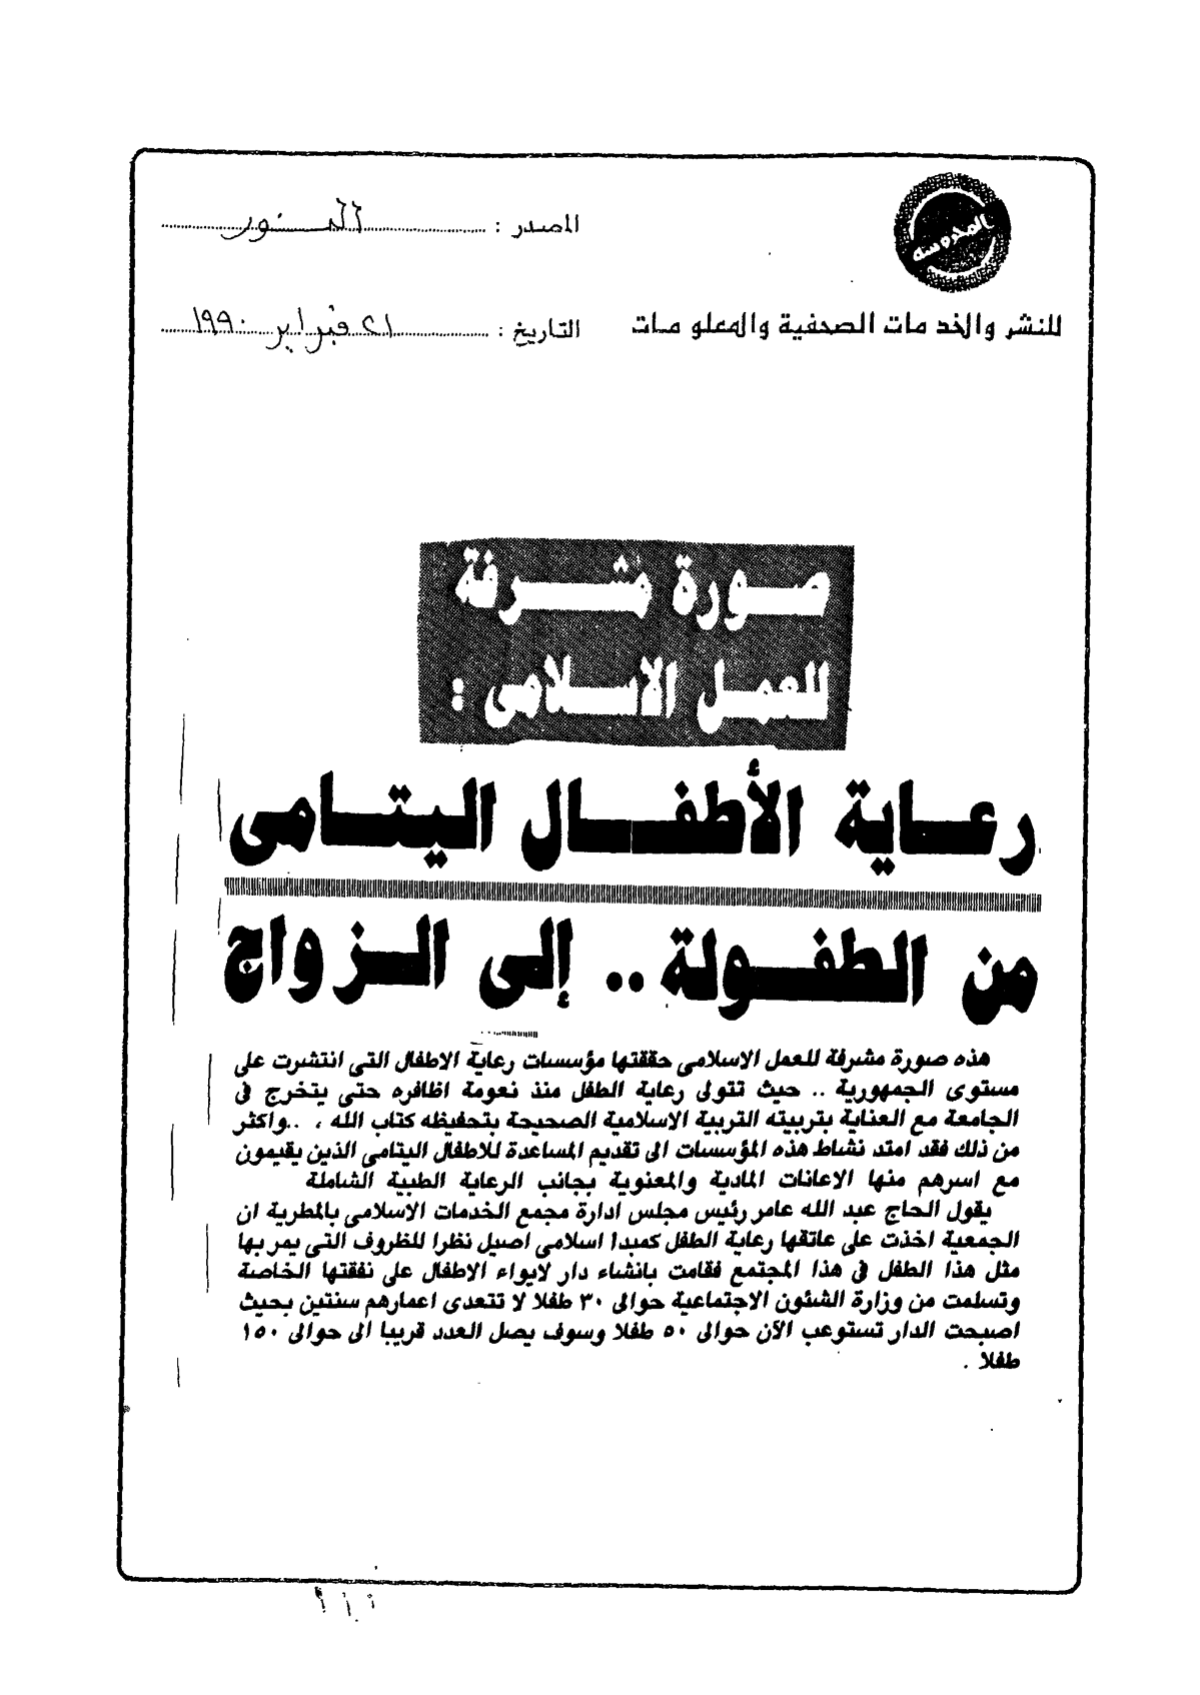 المحروسة
المصدر : النور
للنشر والخدمات الصحفية والمعلومات
التاريخ : ٢١ فبراير ١٩٩٠
صورة مشرفة
للعمل الاسلامى :
رعاية الأطفال اليتامى
من الطفولة .. إلى الزواج
هذه صورة مشرفة للعمل الاسلامى حققتها مؤسسات رعاية الاطفال التى انتشرت على
مستوى الجمهورية .. حيث تتولى رعاية الطفل منذ نعومة اظافره حتى يتخرج فى
الجامعة مع العناية بتربيته التربية الاسلامية الصحيحة بتحفيظه كتاب الله ، ..واكثر
من ذلك فقد امتد نشاط هذه المؤسسات الى تقديم المساعدة للاطفال اليتامى الذين يقيمون
مع اسرهم منها الاعانات المادية والمعنوية بجانب الرعاية الطبية الشاملة
يقول الحاج عبد الله عامر رئيس مجلس ادارة مجمع الخدمات الاسلامى بالمطرية ان
الجمعية اخذت على عاتقها رعاية الطفل كمبدا اسلامى اصيل نظرا للظروف التى يمر بها
مثل هذا الطفل فى هذا المجتمع فقامت بانشاء دار لايواء الاطفال على نفقتها الخاصة
وتسلمت من وزارة الشئون الاجتماعية حوالى ٣٠ طفلا لا تتعدى اعمارهم سنتين بحيث
اصبحت الدار تستوعب الآن حوالى ٥٠ طفلا وسوف يصل العدد قريبا الى حوالى ١٥٠
طفلا .